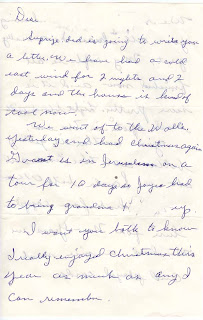 Dear
Suprize dad is going to write you
a letter. We have had a cold
east wind for 2 nights and 2
days and the house is kind of
cool now.
We went of to the Walls
yesterday and had Christmas again
is in Jerusalem on a
tour for 10 days so Joyce had
to bring grandma up.
I want you both to know
I really enjoyed Christmas this
year as much as any I
can remember.